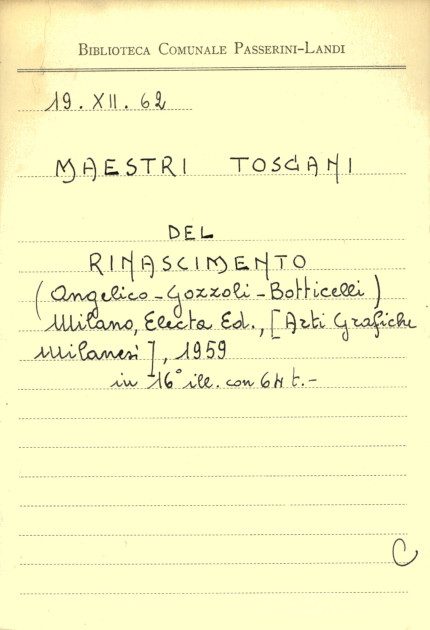 BIBLIOTECA COMUNALE PASSERINI-LANDI
19. XII. 62
MAESTRI TOSCANI
DEL
RINASCIMENTO
(Angelico - Gozzoli - Botticelli)
Milano, Electa Ed., [Arti Grafiche
Milanesi], 1959
in 16° ill. con 64 t.-
C